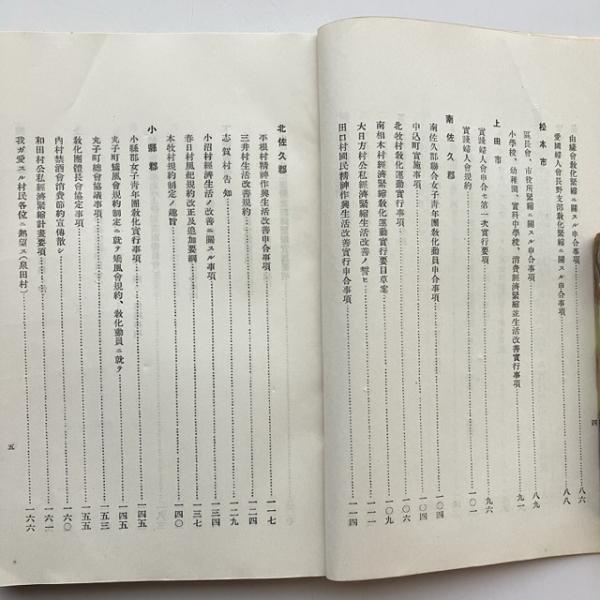 由緣會敎化緊縮ニ關スル申合事項……八六
愛國婦人會長野支部敎化緊縮ニ關スル申合事項……八八
松本市
區長會、市役所緊縮ニ關スル申合事項……八九
小學校、幼稚園、實科中學校、消費經濟緊縮並生活改善實行事項……九一
上田市
實踐婦人會申合セ第一次實行要項……九六
實踐婦人會規約……一〇一
南佐久郡
南佐久郡聯合女子靑年團敎化動員申合事項……一〇四
中込町實施事項……一〇四
北牧村敎化運動實行事項……一〇六
南相木村經濟緊縮敎化運動實行要目草案……一〇九
大日方村公私經濟緊縮生活改善ノ誓ヒ……一一一
田口村國民精神作興生活改善實行申合事項……一一四
四
北佐久郡
平根村精神作興生活改善申合事項……一一七
三井村生活改善規約……一二四
志賀村告知……一二九
小沼村經濟生活ノ改善ニ關スル事項……一三二
春日村風紀規約改正及追加要綱……一三七
本牧村規約制定ノ趣旨……一四〇
小縣郡
小縣郡女子靑年團敎化實行事項……一四五
丸子町矯風會規約制定ニ就テ矯風會規約、敎化動員ニ就テ……一四五
丸子町總會協議事項……一五三
敎化團體長會協定事項……一五五
內村禁酒會消費節約宣傳散シ……一六〇
和田村公私經濟緊縮計畫要項……一六一
我ガ愛スル村民各位ニ熱望ス(泉田村)……一六六
五